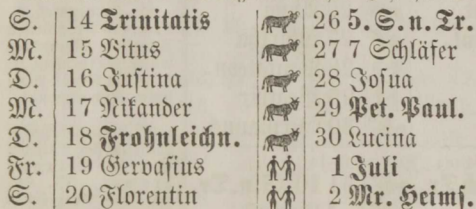 S. 14 Trinitatis 26 5. S. n. Tr.
M. 15 Vitus 27 7 Schläfer
D. 16 Justina 28 Josua
M. 17 Nikander 29 Pet. Paul.
D. 18 Frohnleichn. 30 Lucina
Fr. 19 Gervasius 1 Juli
S. 20 Florentin 2 Mr. Heims.